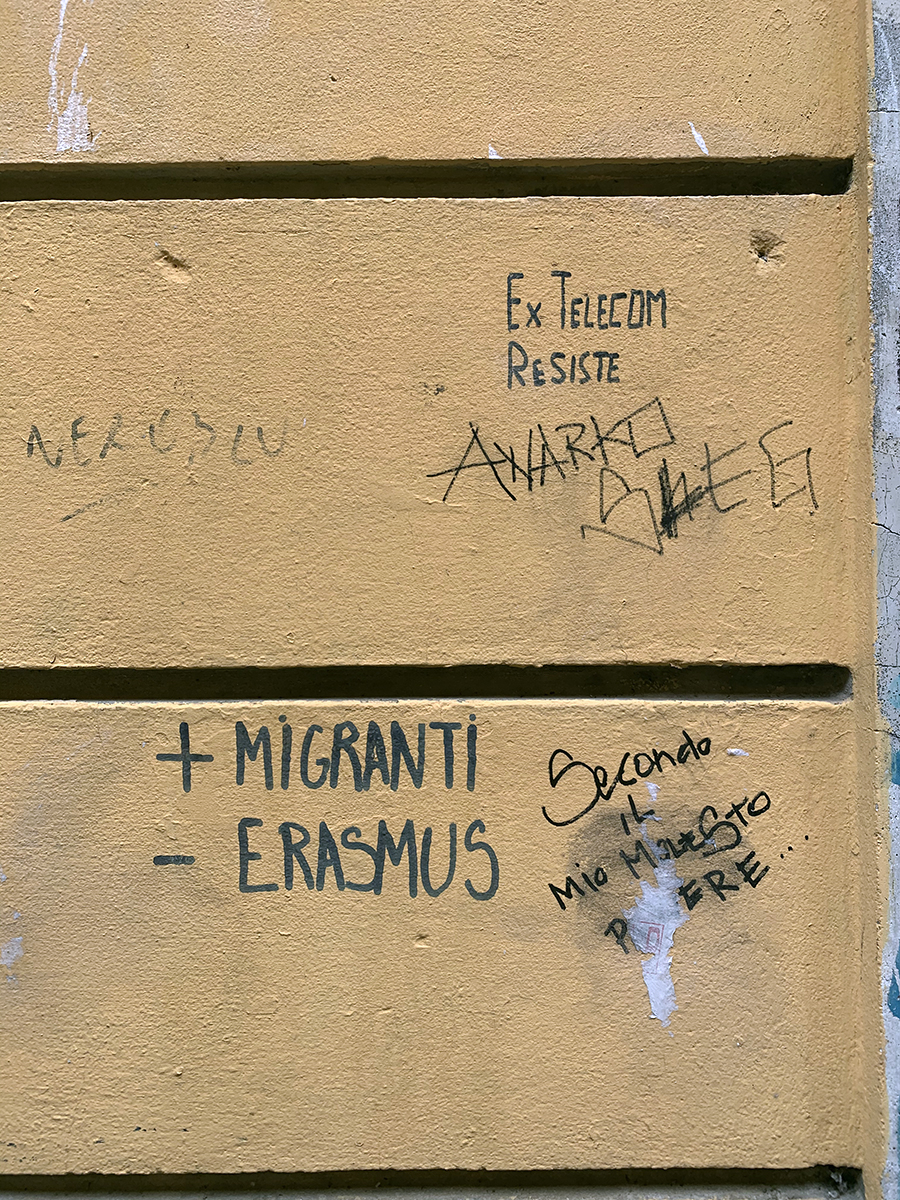 Ex TELECOM
RESISTE
NEROBLU
ANARKO
+ MIGRANTI
- ERASMUS
Secondo
IL
Mio MODESTO